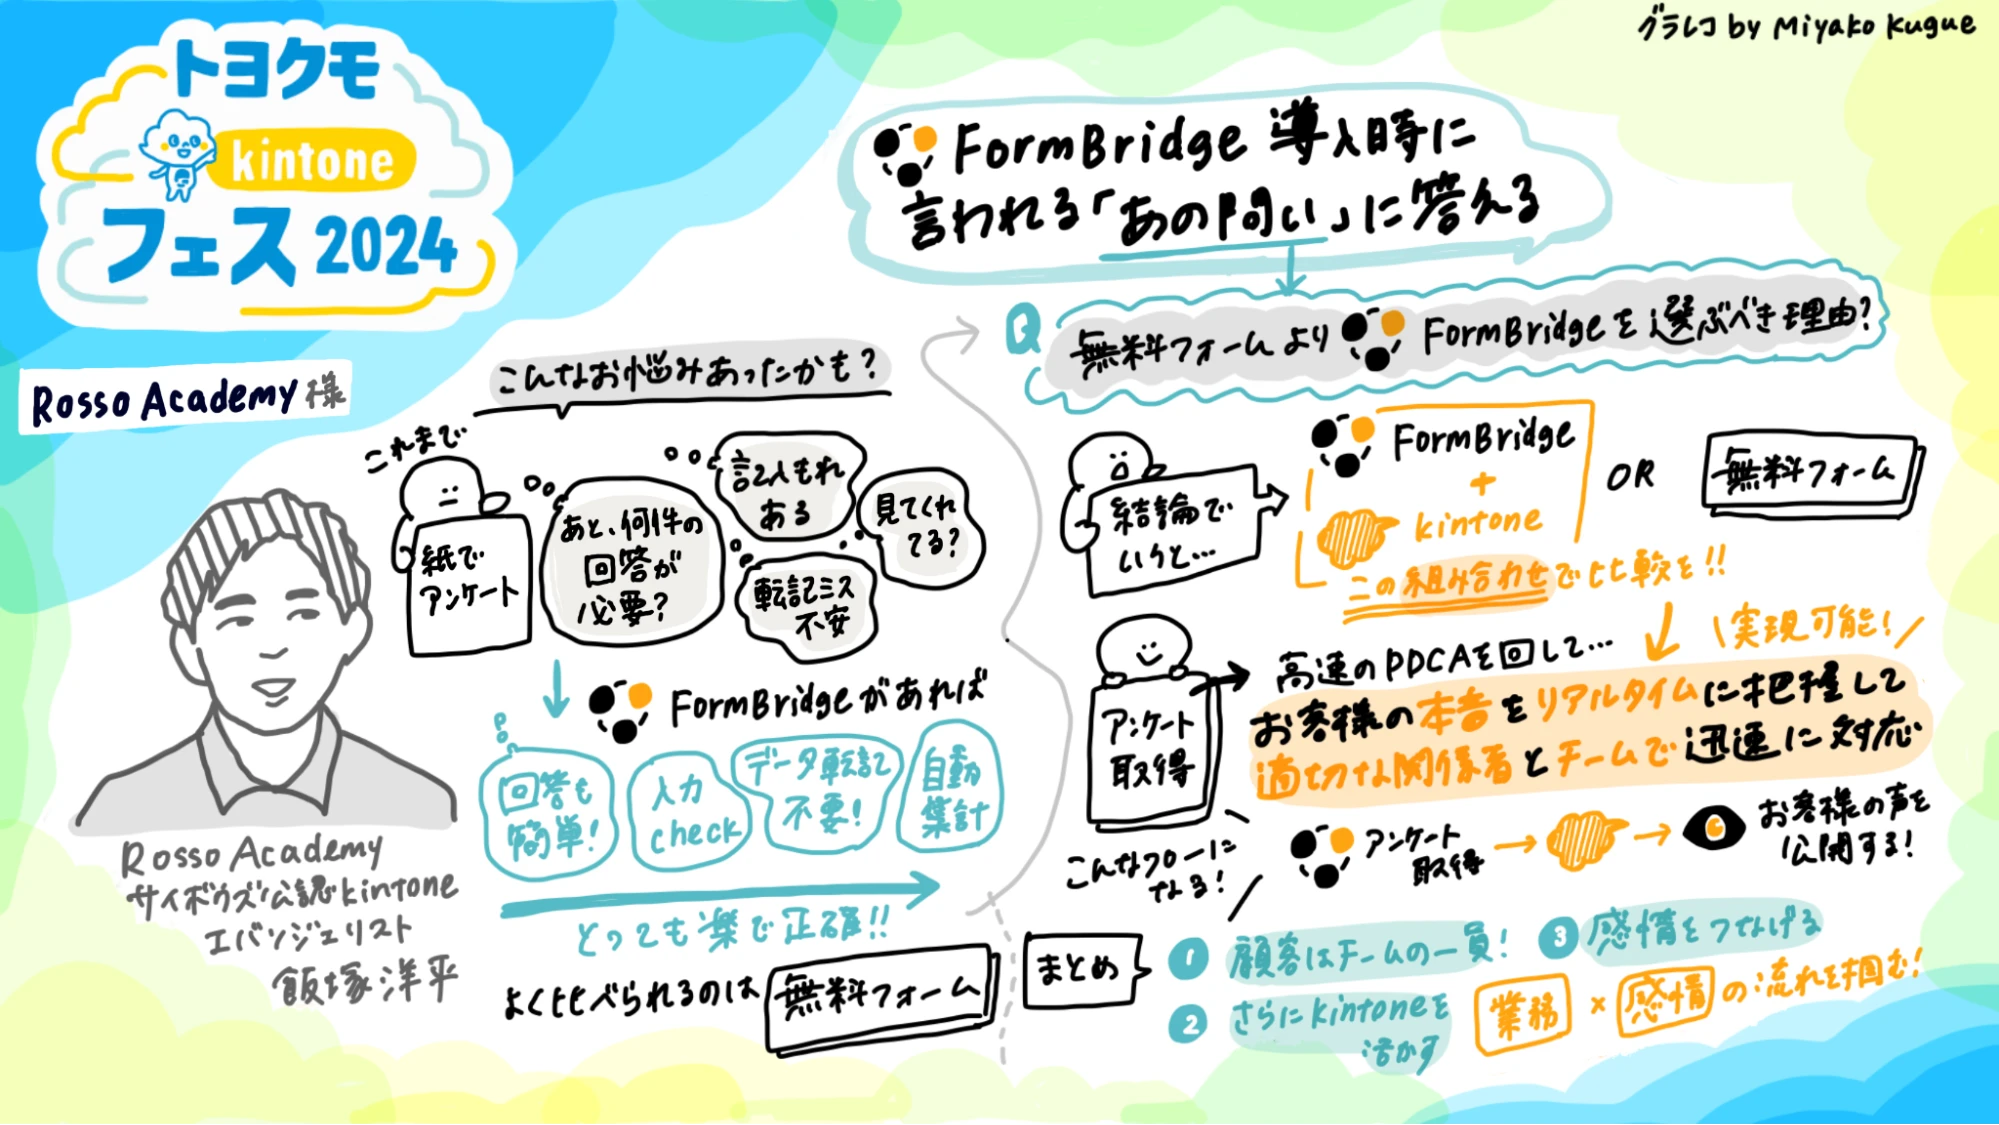 グラレコ by Miyako Kugue
トヨクモ
kintone
フェス 2024
Rosso Academy 様
Rosso Academy
サイボウズ公認kintone
エバンジェリスト
飯塚洋平
FormBridge 導入時に
言われる「あの問い」に答える
こんなお悩みあったかも?
これまで
紙で
アンケート
あと、何件の
回答が
必要?
記入もれ
ある
見てくれ
てる?
転記ミス
不安
FormBridgeがあれば
回答も
簡単!
入力
check
データ転記
不要!
自動
集計
とっても楽で正確!!
よく比べられるのは 無料フォーム
Q 無料フォームより FormBridgeを選ぶべき理由?
結論で
いうと…
FormBridge
+
kintone
OR
無料フォーム
この組み合わせで比較を!!
実現可能!
アンケート
取得
高速のPDCAを回して…
お客様の本音をリアルタイムに把握して
適切な関係者とチームで迅速に対応
こんなフローに
なる!
アンケート
取得
お客様の声を
公開する!
まとめ
1 顧客はチームの一員!
2 さらにkintoneを
活かす
3 感情をつなげる
業務 × 感情 の流れを掴む!